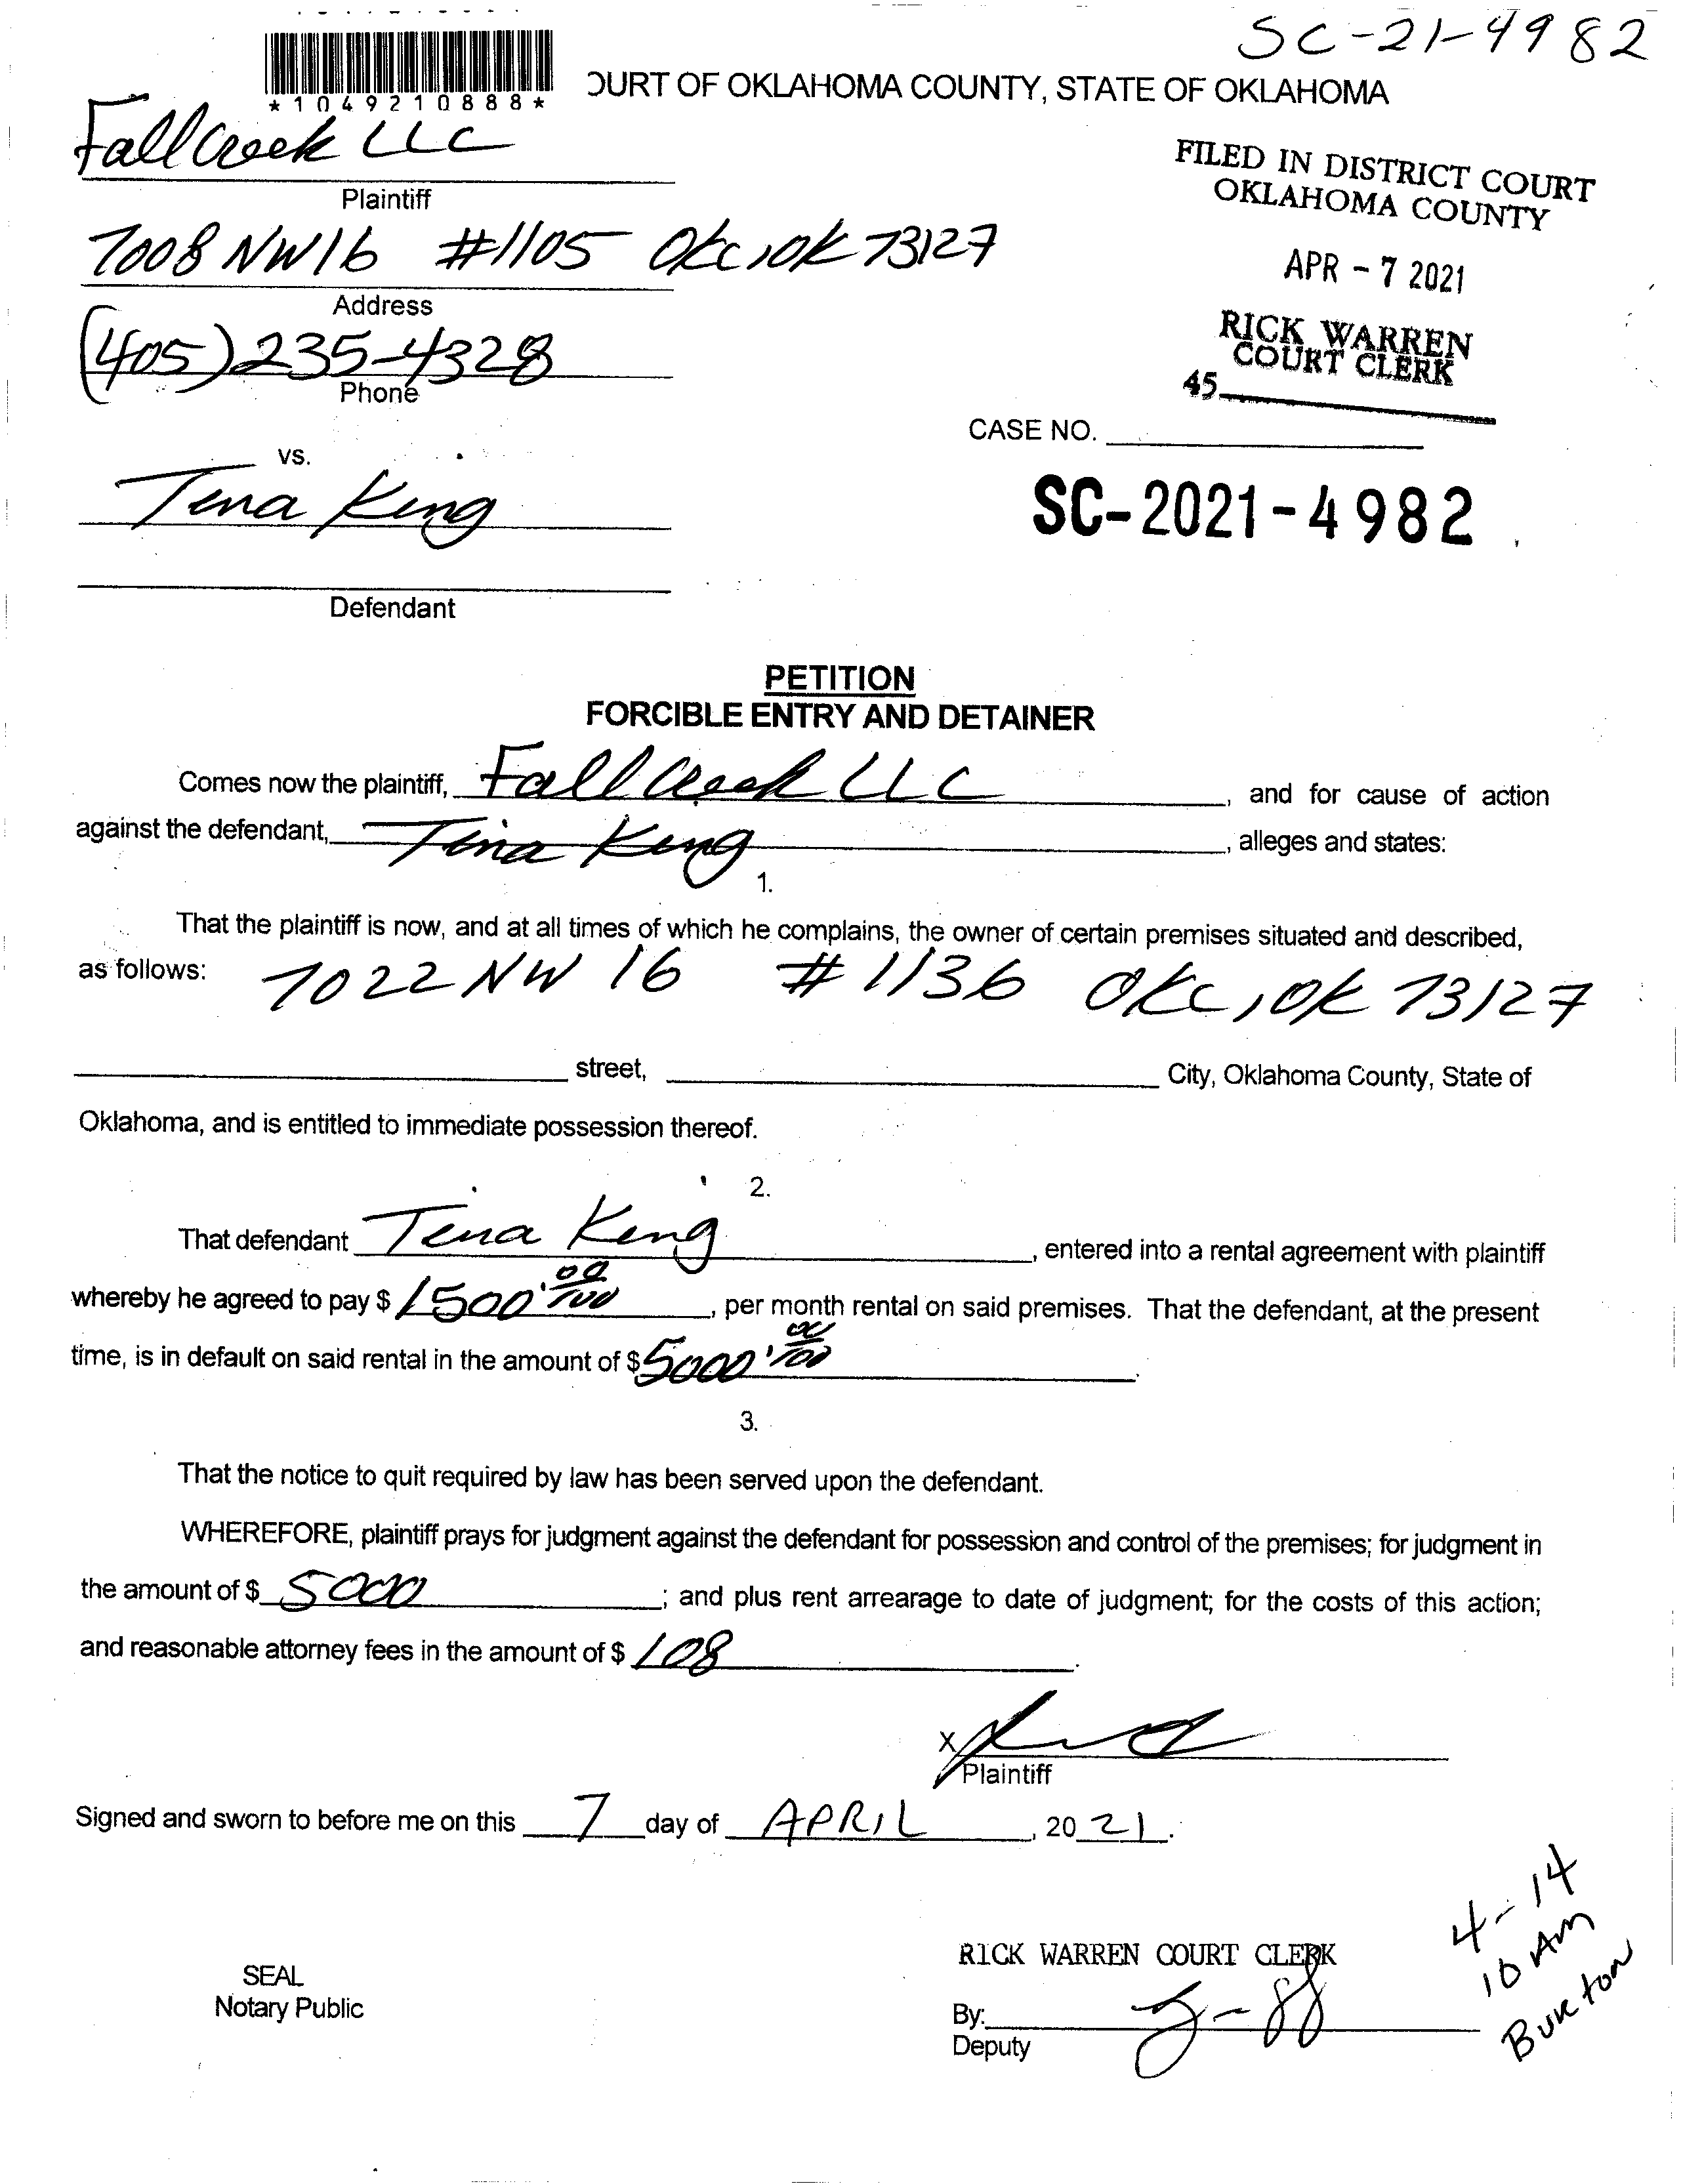 SC-21-4982
*1049210888*
OURT OF OKLAHOMA COUNTY, STATE OF OKLAHOMA
Fall Creek LLC
Plaintiff
7008 NW 16 #1105 OKC, OK 73127
Address
(405) 235-4328
Phone
FILED IN DISTRICT COURT
OKLAHOMA COUNTY
APR - 7 2021
RICK WARREN
COURT CLERK
45
CASE NO.
vs.
Tina King
SC-2021-4982
Defendant
PETITION
FORCIBLE ENTRY AND DETAINER
Comes now the plaintiff, Fall Creek LLC, and for cause of action
against the defendant, Tina King, alleges and states:
1.
That the plaintiff is now, and at all times of which he complains, the owner of certain premises situated and described,
as follows: 7022 NW 16 #1136 OKC, OK 73127
street, City, Oklahoma County, State of
Oklahoma, and is entitled to immediate possession thereof.
2.
That defendant Tina King, entered into a rental agreement with plaintiff
whereby he agreed to pay $ 1500.00/100, per month rental on said premises. That the defendant, at the present
time, is in default on said rental in the amount of $ 5000.00/100.
3.
That the notice to quit required by law has been served upon the defendant.
WHEREFORE, plaintiff prays for judgment against the defendant for possession and control of the premises; for judgment in
the amount of $ 5000; and plus rent arrearage to date of judgment; for the costs of this action;
and reasonable attorney fees in the amount of $ 108.
X
Plaintiff
Signed and sworn to before me on this 7 day of APRIL, 2021.
4-14
10 Am
Burton
RICK WARREN COURT CLERK
SEAL
Notary Public
By:
Deputy